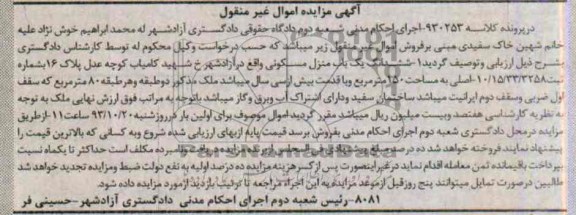 آگهی مزایده اموال غیر منقول
درپرونده کلاسه ۹۳۰۲۵۳-اجرای احکام مدنی شعبه دوم دادگاه حقوقی دادگستری آزادشهر له محمد ابراهیم خوش نژاد علیه
خانم شهین خاک سفیدی مبنی برفروش اموال غیر منقول زیر میباشد که حسب درخواست وکیل محکوم له توسط کارشناس دادگستری
بشرح ذیل ارزیابی و توصیف گردید۱-ششدانگ یک باب منزل مسکونی واقع درآزادشهرخ شهید کامیاب کوچه عدل پلاک ۱۶بشماره
ثبت۱۰/۱۵/۳۳/۳۲۵۸-اصلی به مساحت ۲۵۰مترمربع وبا قدمت بیش ازسی سال میباشد ملک مذکور دوطبقه وهرطبقه ۸۰ مترمربع که سقف
اول ضربی وسقف دوم ایرانیت میباشد ساختمان سفید ودارای اشتراک آب وبرق وگاز میباشد باتوجه به مراتب فوق ارزش نهایی ملک به توجه
به نظریه کارشناسی هفتصد وبیست میلیون ریال میباشد مقرر گردید اموال موصوف برای اولین بار درروزشنبه ۹۳/۱۰/۲۰ ساعت۱۱-ازطریق
مزایده درمحل دادگستری شعبه دوم اجرای احکام مدنی بفروش برسد قیمت پایه ازبهای ارزیابی شده شروع وبه کسانی که بالاترین قیمت را
پیشنهاد نمایند فروخته خواهد شد ده درصد مبلغ پیشنهادی فی المجلس از برنده مزایده دریافت ونامبرده مکلف است حداکثر تا یکماه نسبت
بپرداخت باقیمانده ثمن معامله اقدام نماید درغیراینصورت پس ازکسرهزینه مزایده ده درصد اولیه به نفع دولت ضبط ومزایده تجدید خواهد شد
طالبین درصورت تمایل میتوانند پنج روزقبل ازموعد مزایده به این اجراء مراجعه تا ترتیب بازدید ازمورد مزایده داده شود
۸۰۸۱-رئیس شعبه دوم اجرای احکام مدنی دادگستری آزادشهر-حسینی فر